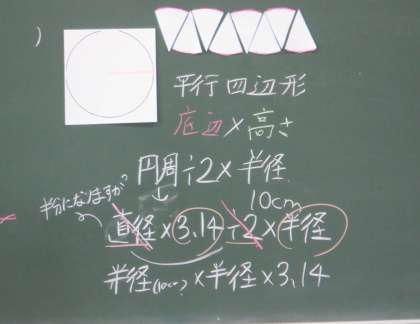 )
平行四辺形
底辺×高さ
円周÷2×半径
10cm
半分になりますが
直径×3.14÷2×半径
半径(10cm)×半径×3.14